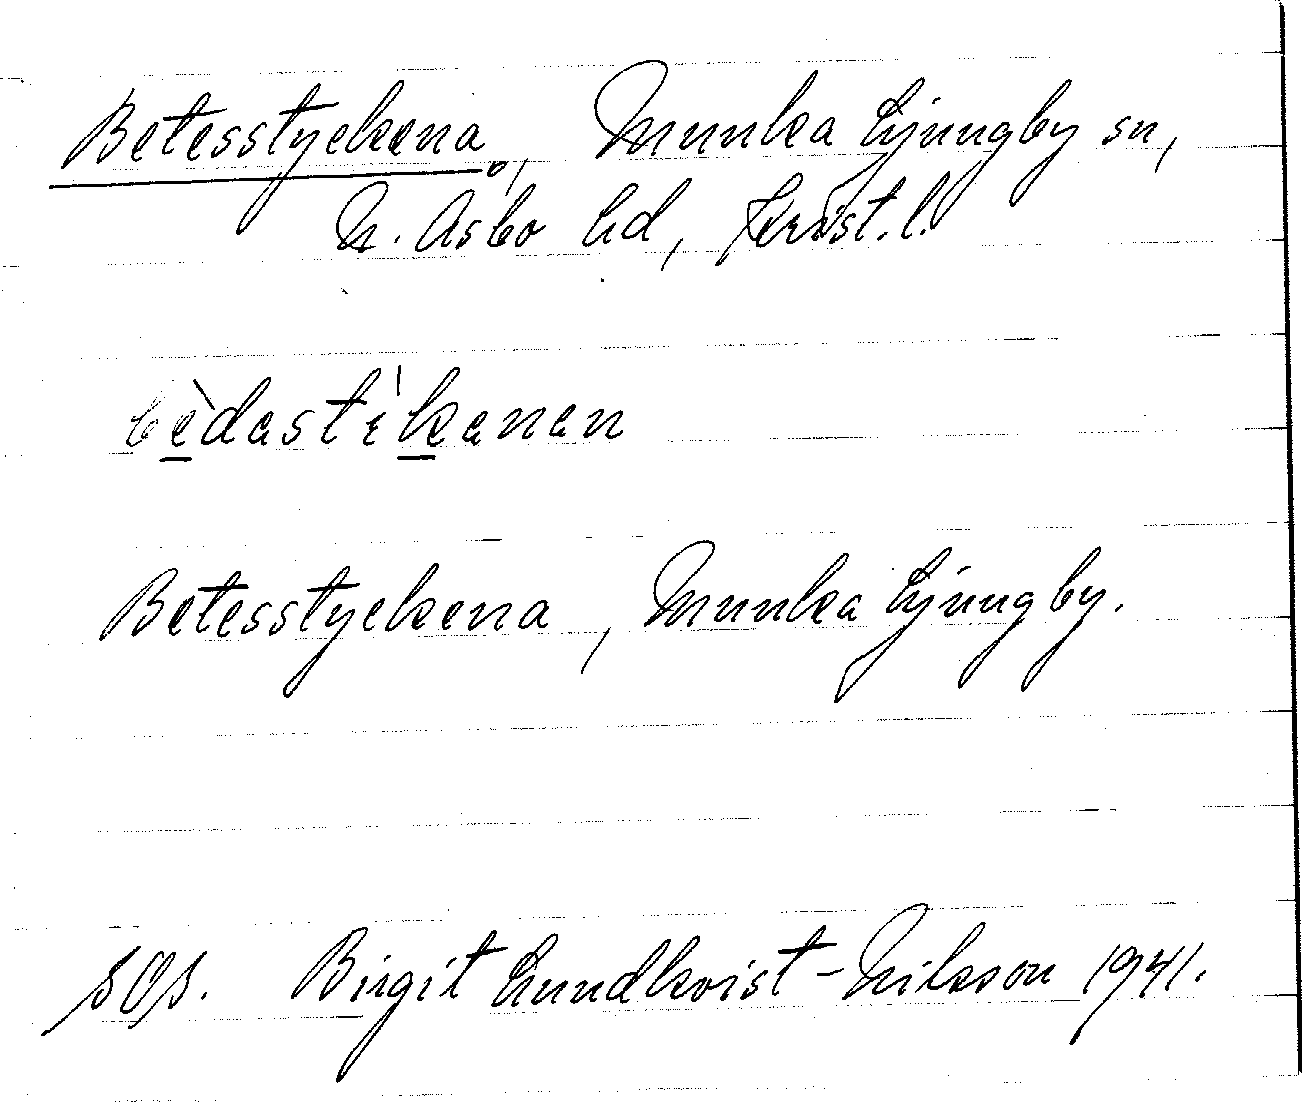 Betesstyckena, Munka Ljungby sn,
N. Åsbo hd, Krist. l.
bèdastìkanan
Betesstyckena, Munka Ljungby.
SOS. Birgit Lundkvist-Nilsson 1941.